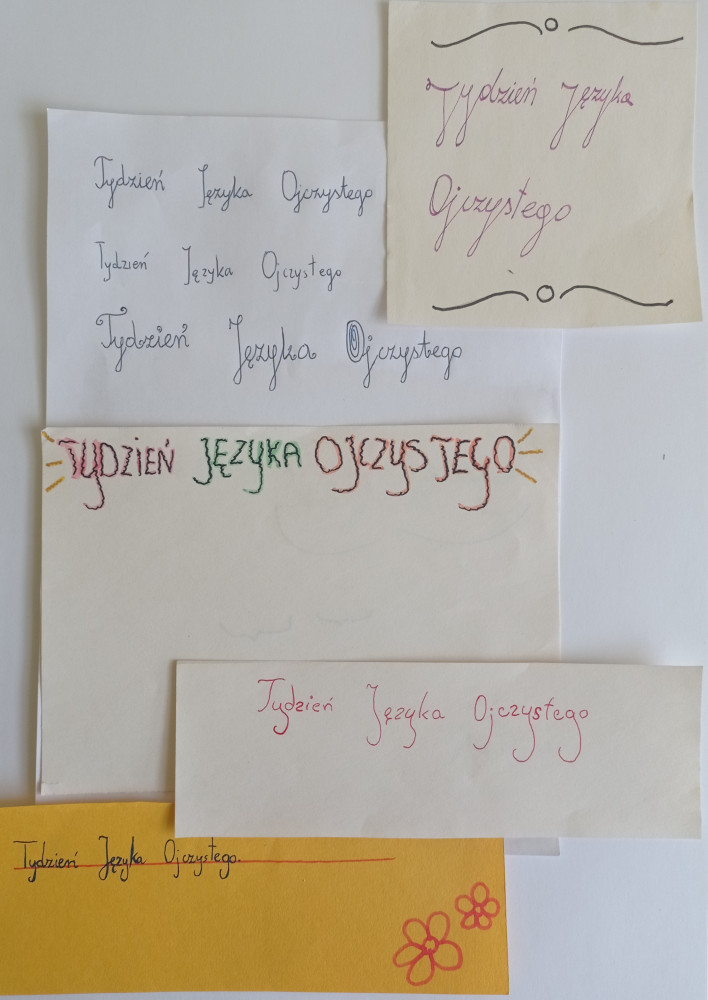 Tydzień Języka
Ojczystego
Tydzień Języka Ojczystego
Tydzień Języka Ojczystego
Tydzień Języka Ojczystego
TYDZIEŃ JĘZYKA OJCZYSTEGO
Tydzień Języka Ojczystego
Tydzień Języka Ojczystego.